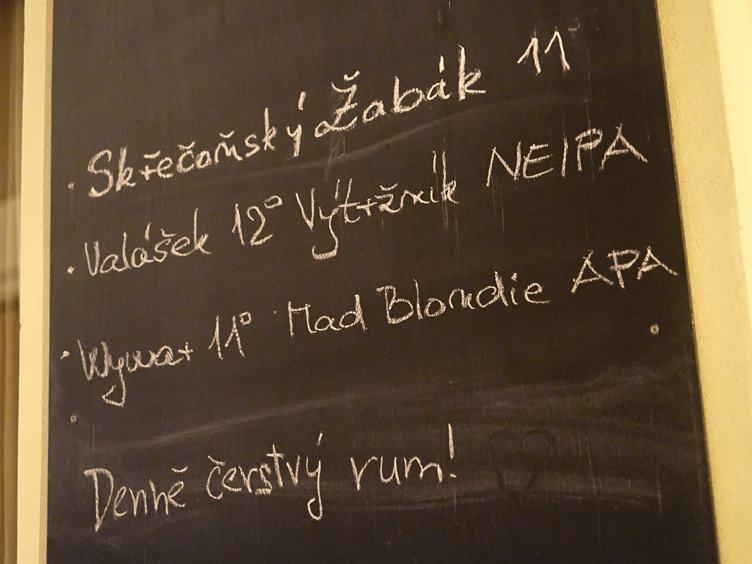 · Skřečoňský Žabák 11°
· Valášek 12° Výtržník NEIPA
· Wywar 11° Mad Blondie APA
Denně čerstvý rum!